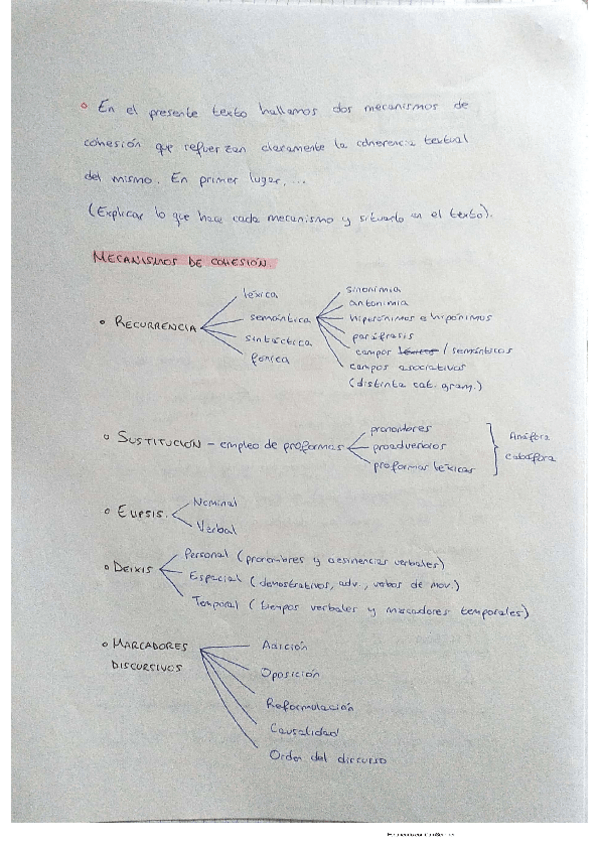 En el presente texto hallamos dos mecanismos de
cohesión que refuerzan claramente la coherencia textual
del mismo. En primer lugar, ...
(Explicar lo que hace cada mecanismo y situarlo en el texto).
MECANISMOS DE COHESIÓN.
RECURRENCIA
léxica
semántica
sintáctica
fónica
sinonimia
antonimia
hiperónimos e hipónimos
paráfrasis
campos léxicos / semánticos
campos asociativos
(distinta cat. gram.)
SUSTITUCIÓN – empleo de proformas
pronombres
proadverbios
proformas léxicas
Anáfora
Catáfora
ELIPSIS.
Nominal
Verbal
DEIXIS
Personal (pronombres y desinencias verbales)
Espacial (demostrativos, adv., verbos de mov.)
Temporal (tiempos verbales y marcadores temporales)
MARCADORES
DISCURSIVOS
Adición
Oposición
Reformulación
Causalidad
Orden del discurso